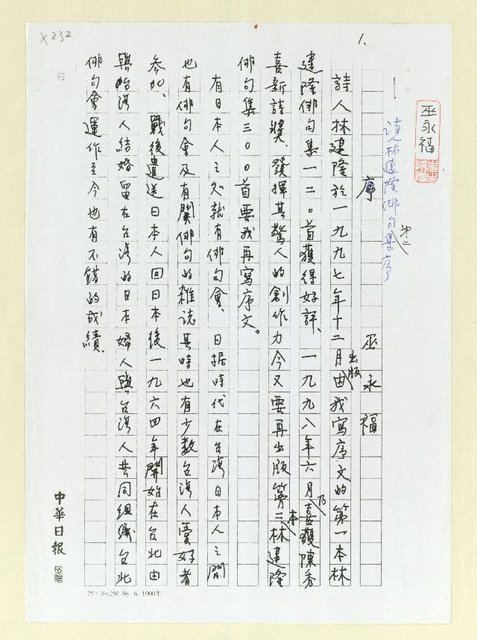 X232
1.
巫永福
詩人林建隆俳句集序
第二
序
巫永福
詩人林建隆於一九九七年十二月出版由我寫序文的第一本林
建隆俳句集一二〇首獲得好評、一九九八年六月乃喜獲陳秀
喜新詩獎、發揮其驚人的創作力今又要再出版第二本林建隆
俳句集三〇〇首要我再寫序文。
有日本人之處就有俳句會、日据時代在台灣日本人之間
也有俳句會及有關俳句的雜誌其時也有少數台灣人愛好者
參加、戰後遣送日本人回日本後一九六四年開始在台北由
與台灣人結婚留在台灣的日本婦人與台灣人共同組織台北
俳句會運作至今也有不錯的成績、
中華日報
敬贈
25×10=250 86. 6. 1000本